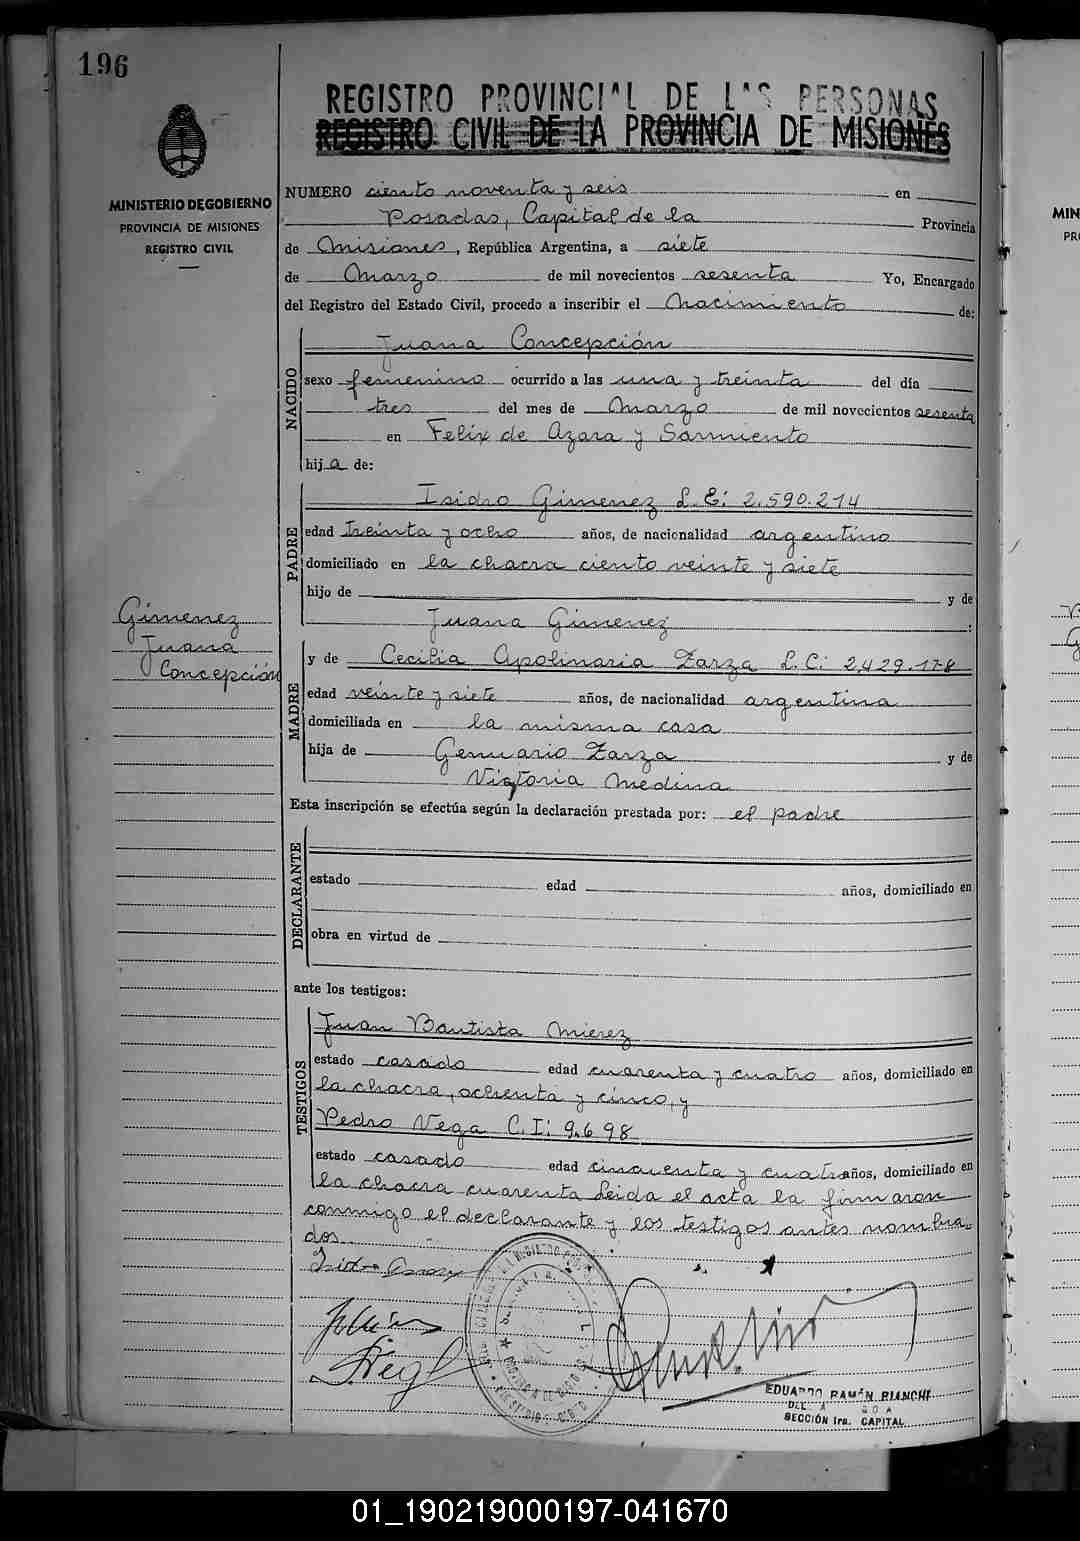 196
REGISTRO PROVINCIAL DE LAS PERSONAS
REGISTRO CIVIL DE LA PROVINCIA DE MISIONES
MINISTERIO DE GOBIERNO
PROVINCIA DE MISIONES
REGISTRO CIVIL
NUMERO ciento noventa y seis en
Posadas, Capital de la Provincia
de Misiones, República Argentina, a siete
de Marzo de mil novecientos sesenta Yo, Encargado
del Registro del Estado Civil, procedo a inscribir el Nacimiento de:
NACIDO
Juana Concepción
sexo femenino ocurrido a las una y treinta del día
tres del mes de Marzo de mil novecientos sesenta
en Felix de Azara y Sarmiento
hija de:
PADRE
Isidro Gimenez L.E: 2.590.214
edad treinta y ocho años, de nacionalidad argentino
domiciliado en la chacra ciento veinte y siete
hijo de y de
Juana Gimenez
Gimenez
Juana
Concepción
MADRE
y de Cecilia Apolinaria Zarza L.C: 2,429.178
edad veinte y siete años, de nacionalidad argentina
domiciliada en la misma casa
hija de Genuario Zarza y de
Victoria Medina
Esta inscripción se efectúa según la declaración prestada por: el padre
DECLARANTE
estado edad años, domiciliado en
obra en virtud de
ante los testigos:
TESTIGOS
Juan Bautista Mierez
estado casado edad cuarenta y cuatro años, domiciliado en
la chacra, ochenta y cinco, y
Pedro Vega C.I: 9.698
estado casado edad cincuenta y cuatro años, domiciliado en
la chacra cuarenta Leida el acta la firmaron
conmigo el declarante y los testigos antes nombra-
dos.
EDUARDO RAMÓN BIANCHI
SECCIÓN 1ra. CAPITAL
MIN
PRO
01_190219000197-041670